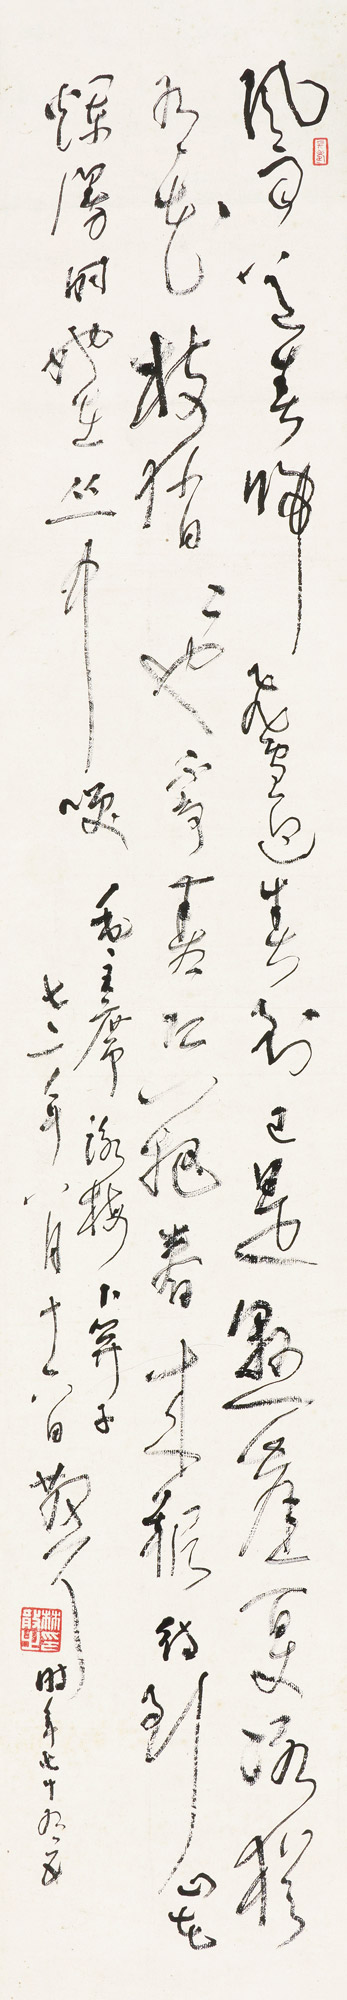 風雨送春歸飛雪迎春到已是懸崖百丈冰猶
有花枝俏〻也不爭春只把春來報待到山花
爛漫时她在丛中咲
毛主席詠梅卜算子
七二年八月十六日散耳时年七十有五